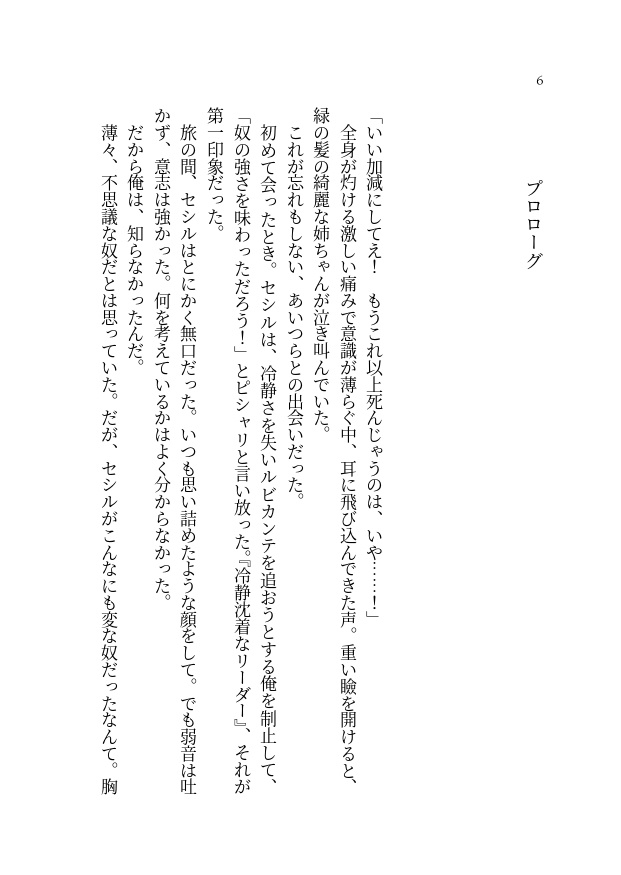 6
プロローグ
「いい加減にしてえ！　もうこれ以上死んじゃうのは、いや……！」
　全身が灼ける激しい痛みで意識が薄らぐ中、耳に飛び込んできた声。重い瞼を開けると、
緑の髪の綺麗な姉ちゃんが泣き叫んでいた。
　これが忘れもしない、あいつらとの出会いだった。
　初めて会ったとき。セシルは、冷静さを失いルビカンテを追おうとする俺を制止して、
「奴の強さを味わっただろう！」とピシャリと言い放った。『冷静沈着なリーダー』、それが
第一印象だった。
　旅の間、セシルはとにかく無口だった。いつも思い詰めたような顔をして。でも弱音は吐
かず、意志は強かった。何を考えているかはよく分からなかった。
　だから俺は、知らなかったんだ。
　薄々、不思議な奴だとは思っていた。だが、セシルがこんなにも変な奴だったなんて。胸